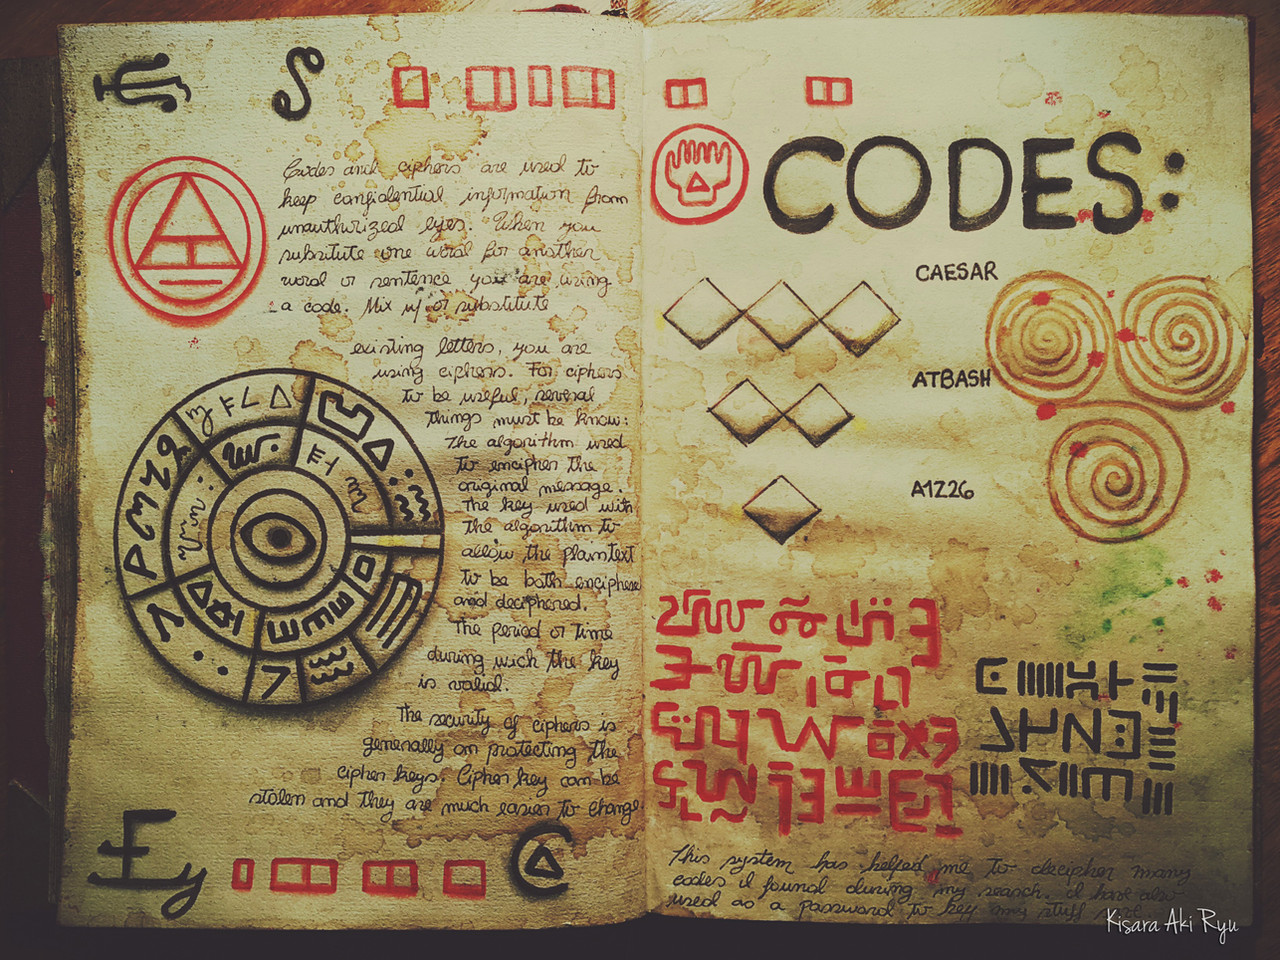 Codes and ciphers are used to
keep confidential information from
unauthorized eyes. When you
substitute one word for another
word or sentence you are using
a code. Mix up or substitute
existing letters, you are
using ciphers. For ciphers
to be useful, several
things must be know:
The algorithm used
to encipher the
original message.
The key used with
the algorithm to
allow the plaintext
to be both enciphered
and deciphered.
The period or time
during wich the key
is valid.
The security of ciphers is
generally on protecting the
cipher keys. Cipher key can be
stolen and they are much easier to change
CODES:
CAESAR
ATBASH
A1Z26
This system has helped me to decipher many
codes I found during my search. I have also
used as a password to key my stuff
Kisara Aki Ryu